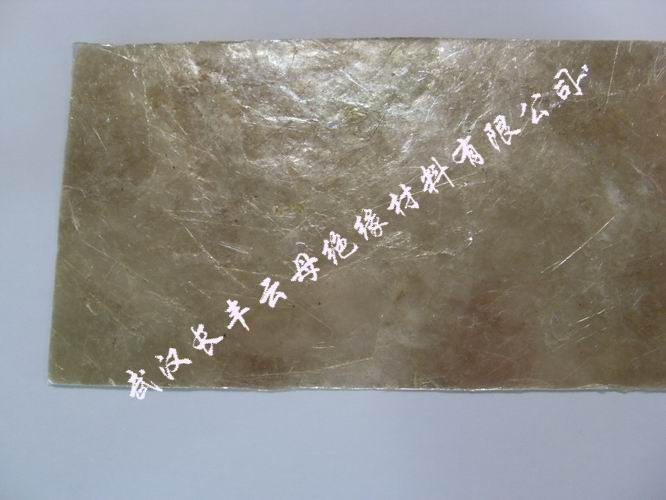 武汉长丰云母绝缘材料有限公司